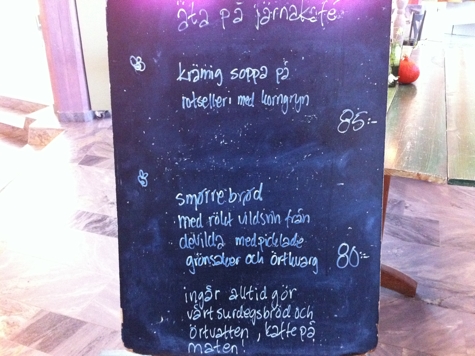 äta på järnakafé
krämig soppa på
rotselleri med korngryn
85:-
smørrebrød
med rökt vildsvin från
devilda med picklade
grönsaker och örtkvarg 80:-
ingår alltid gör
vårt surdegsbröd och
örtvatten, kaffe på
maten!